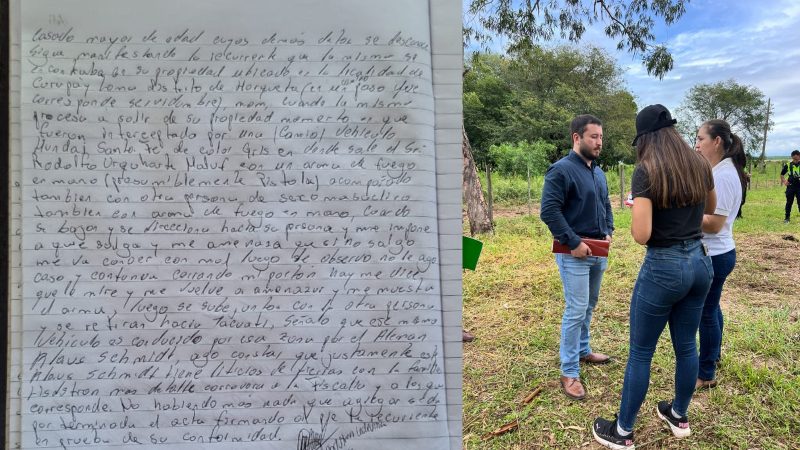 Casado mayor de edad cuyos demás datos se desconoce
Sigue manifestando la recurrente que la misma se
encontraba de su propiedad ubicado en la localidad de
Curupay Loma distrito de Horqueta (en un paso que
corresponde servidumbre) mom, cuando la misma
procesa a salir de su propiedad momento en que
fueron interceptado por una (Camio) vehículo
Hunday Santa Fe, de color Gris en desde sale el Señ
Rodolfo Urquhart Maluf con un arma de fuego
en mano (presumiblemente Pistola) acompañado
tambien con otra persona de sexo masculino
tambien con arma de fuego en mano, cuando
se bajan y se direcciona hacia su persona y me impone
a que salga y me amenaza que si no salgo
me va a poner con mal luego de observo no le hago
caso y continua cerrando mi portón hay me dice
que lo mire y me vuelve a amenazar y me muestra
el arma, luego se sube, con la otra persona
y se retiran hacia Tacuati, Señalo que ese mismo
vehículo es conducido por esa zona por el Aleman
Klaus Schmidt, ago constar que justamente este
Klaus Schmidt tiene litigios de tierras con la familia
mas detalle a la Fiscalia y a los que
corresponde. No habiendo más nada que agregar se da
por terminada el acta firmando al pie la recurriente
en prueba de su conformidad.